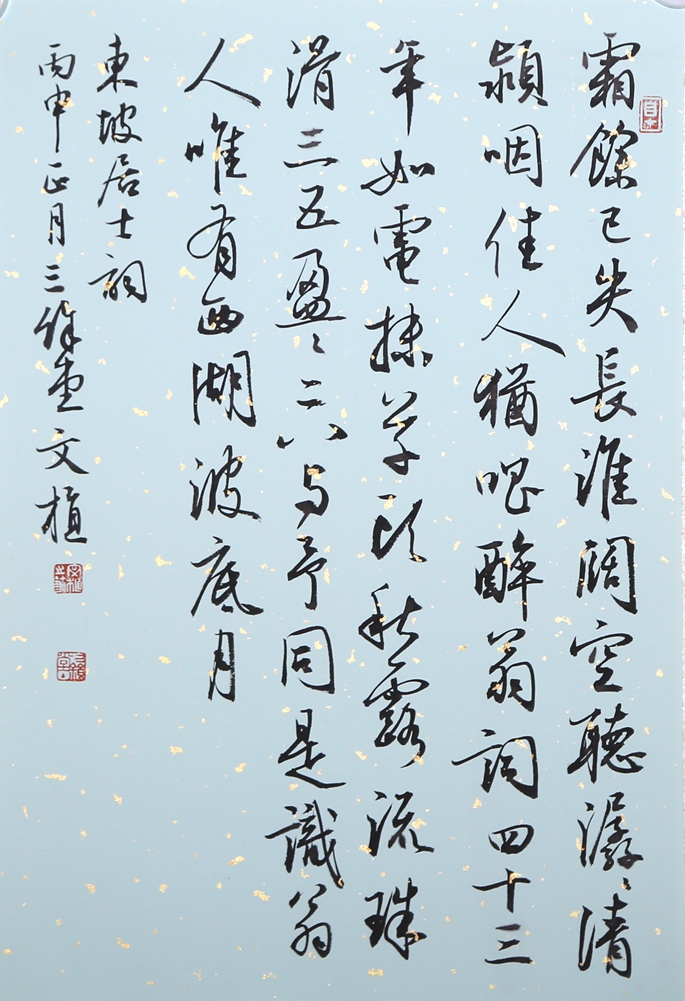 霜餘已失長淮闊空聽潺〻清
潁咽佳人猶唱醉翁詞四十三
年如電抹草頭秋露流珠
滑三五盈〻二八与予同是識翁
人唯有西湖波底月
東坡居士詞
丙申正月三餘堂文植